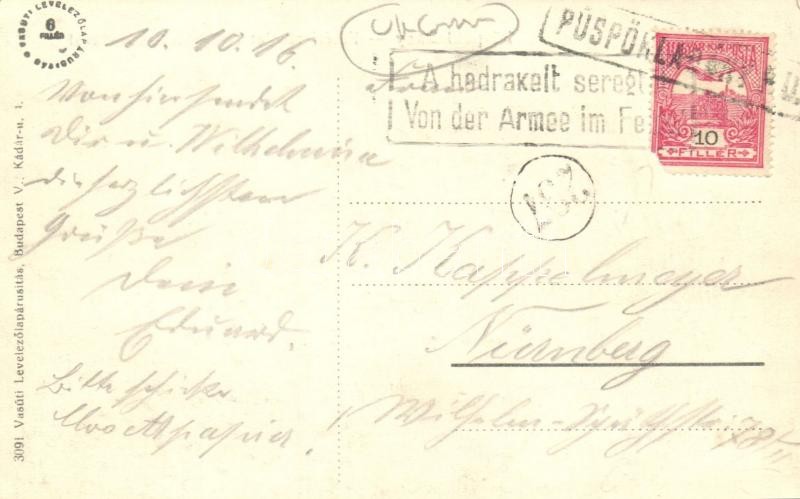 VASUTI LEVELEZŐLAPÁRUSITÁS
6
FILLÉR
10.10.16.
Von hier sendet
Dir u. Wilhelmina
die herzlichsten
Grüße
Dein
Eduard.
Bitte schicke
3091 Vasúti Levelezőlapárusitás, Budapest V., Kádár-u. 1.
PÜSPÖKLA
A hadrakelt seregt
Von der Armee im Fe
MAGYAR KIR. POSTA
10
FILLÉR
K. Kappelmeyer
Nürnberg
78/II